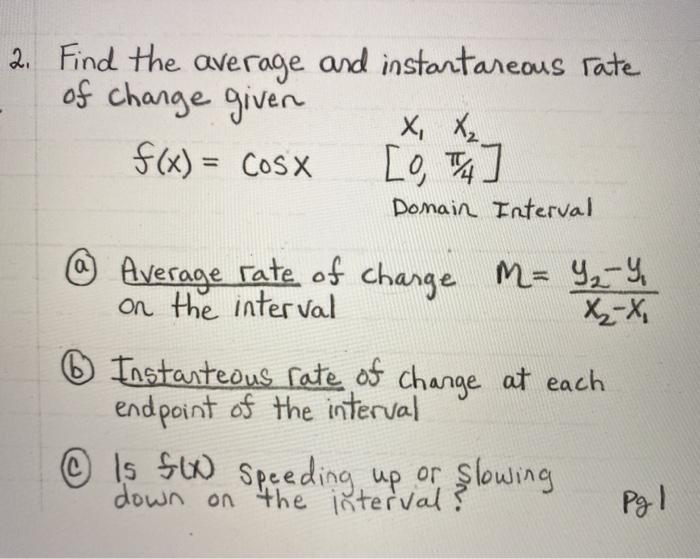 2. Find the average and instantaneous rate
of change given
X₁ X₂
f(x) = cosx [0, π/4]
Domain Interval
ⓐ Average rate of change M= y₂-y₁ / x₂-x₁
on the interval
ⓑ Instanteous rate of change at each
endpoint of the interval
ⓒ Is f(x) speeding up or slowing
down on the interval?
Pg 1